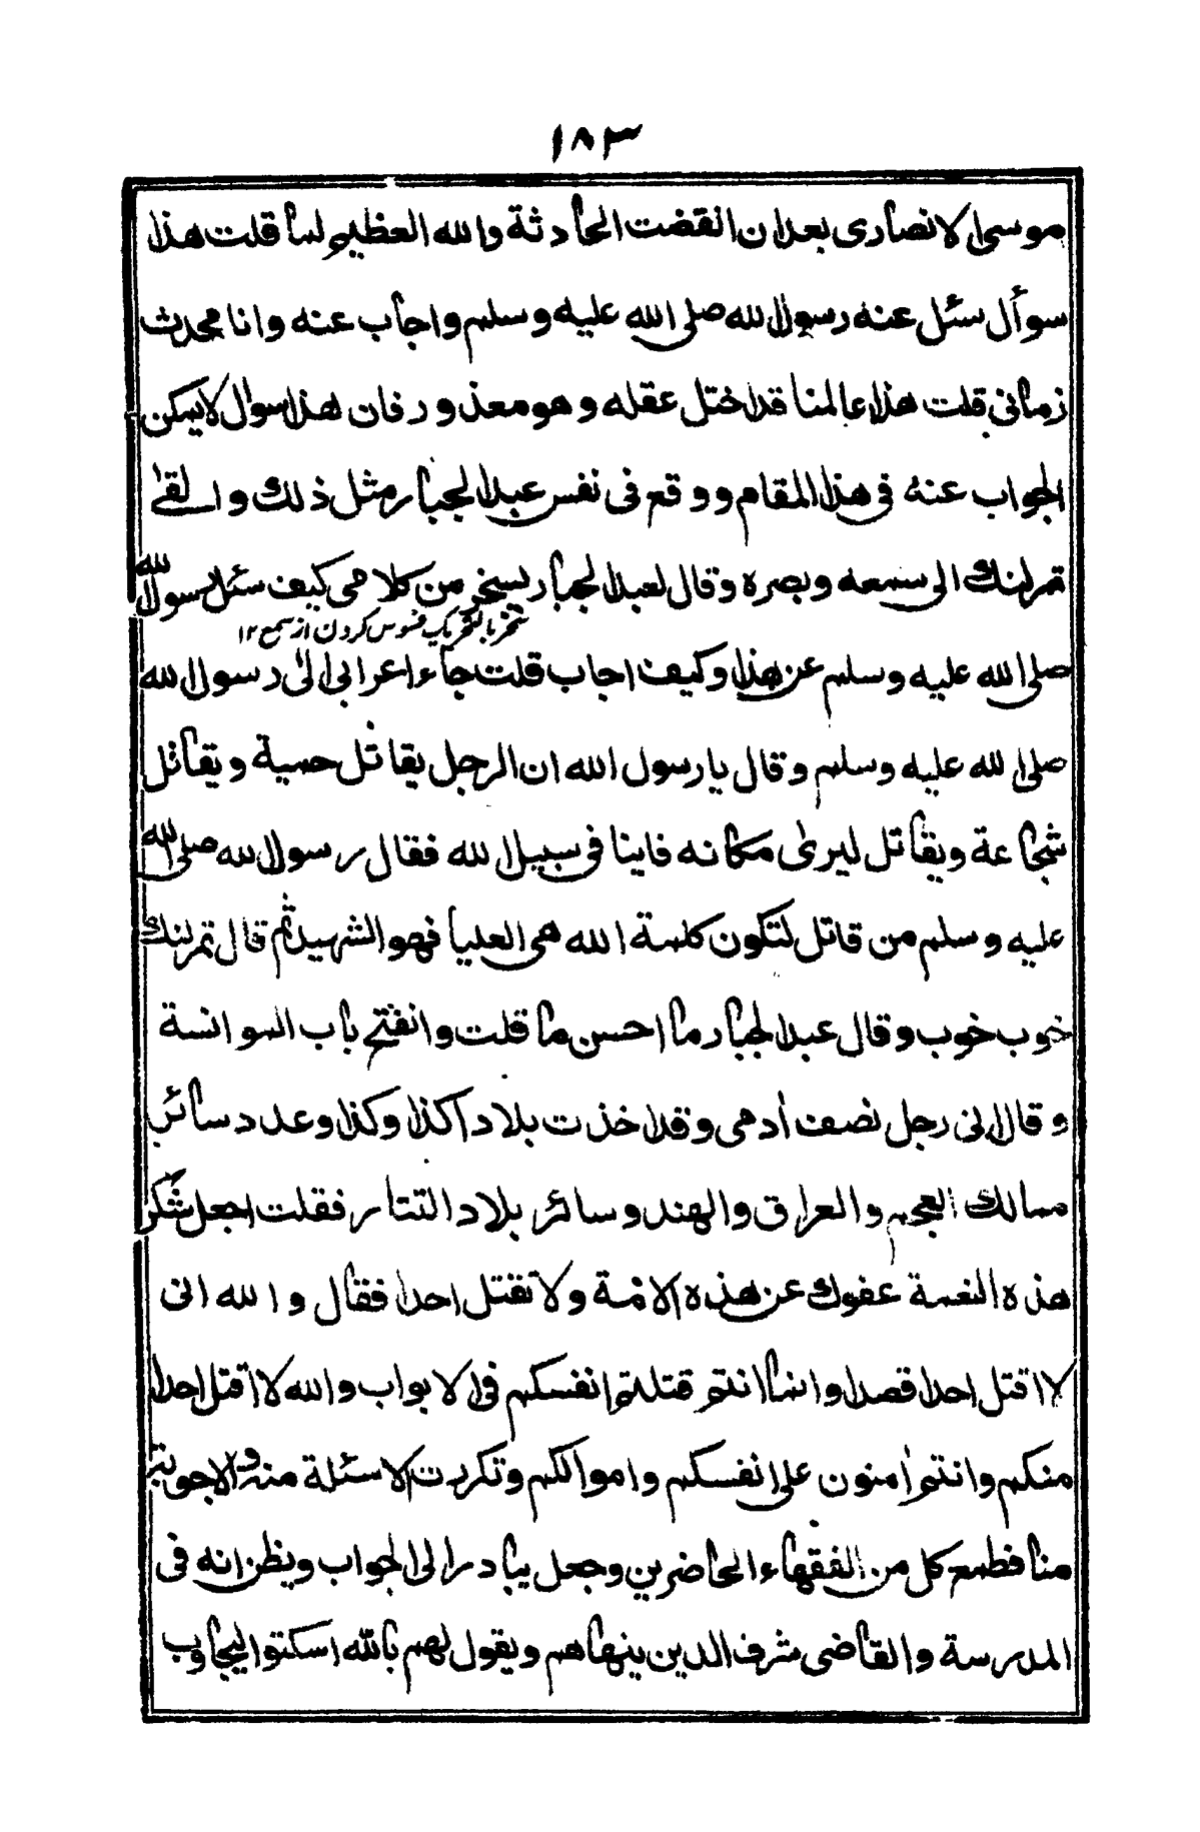 ١٨٣
موسى الانصارى بعد ان انقضت الحادثة والله العظيم لما قلت هذا
سوأل سئل عنه رسول الله صلى الله عليه وسلم واجاب عنه وانا محدث
زمانى قلت هذا عالمنا قد اختل عقله وهو معذور فان هذا سوال لا يمكن
الجواب عنه فى هذا المقام ووقع فى نفس عبد الجبار مثل ذلك والقى
تمرلنك الى سمعه وبصره وقال لعبد الجبار يسخر من كلامى كيف سئل رسول الله
تسخر بالتحريك فسوس كردن از سمع ١٢
صلى الله عليه وسلم عن هذا وكيف اجاب قلت جاء اعرابى الى رسول الله
صلى الله عليه وسلم وقال يا رسول الله ان الرجل يقاتل حمية ويقاتل
شجاعة ويقاتل ليرى مكانه فاينا فى سبيل الله فقال رسول الله صلى الله
عليه وسلم من قاتل لتكون كلمة الله هى العليا فهو الشهيد ثم قال تمرلنك
خوب خوب وقال عبد الجبار ما احسن ما قلت وانفتح باب الموانسة
وقال انى رجل نصف أدمى وقد اخذت بلاد اكذا وكذا وعدد سائر
ممالك العجم والعراق والهند وسائر بلاد التتار فقلت اجعل شكر
هذه النعمة عفوك عن هذه الامة ولا تقتل احدا فقال والله انى
لا اقتل احدا قصدا وانما انتم قتلتم انفسكم فى الابواب والله لا اقتل احدا
منكم وانتم أمنون على انفسكم واموالكم وتكررت الاسئلة منه والاجوبة
منا فطمع كل من الفقهاء الحاضرين وجعل يبادر الى الجواب ويظن انه فى
المدرسة والقاضى شرف الدين ينهاهم ويقول لهم بالله اسكتوا ليجاوب